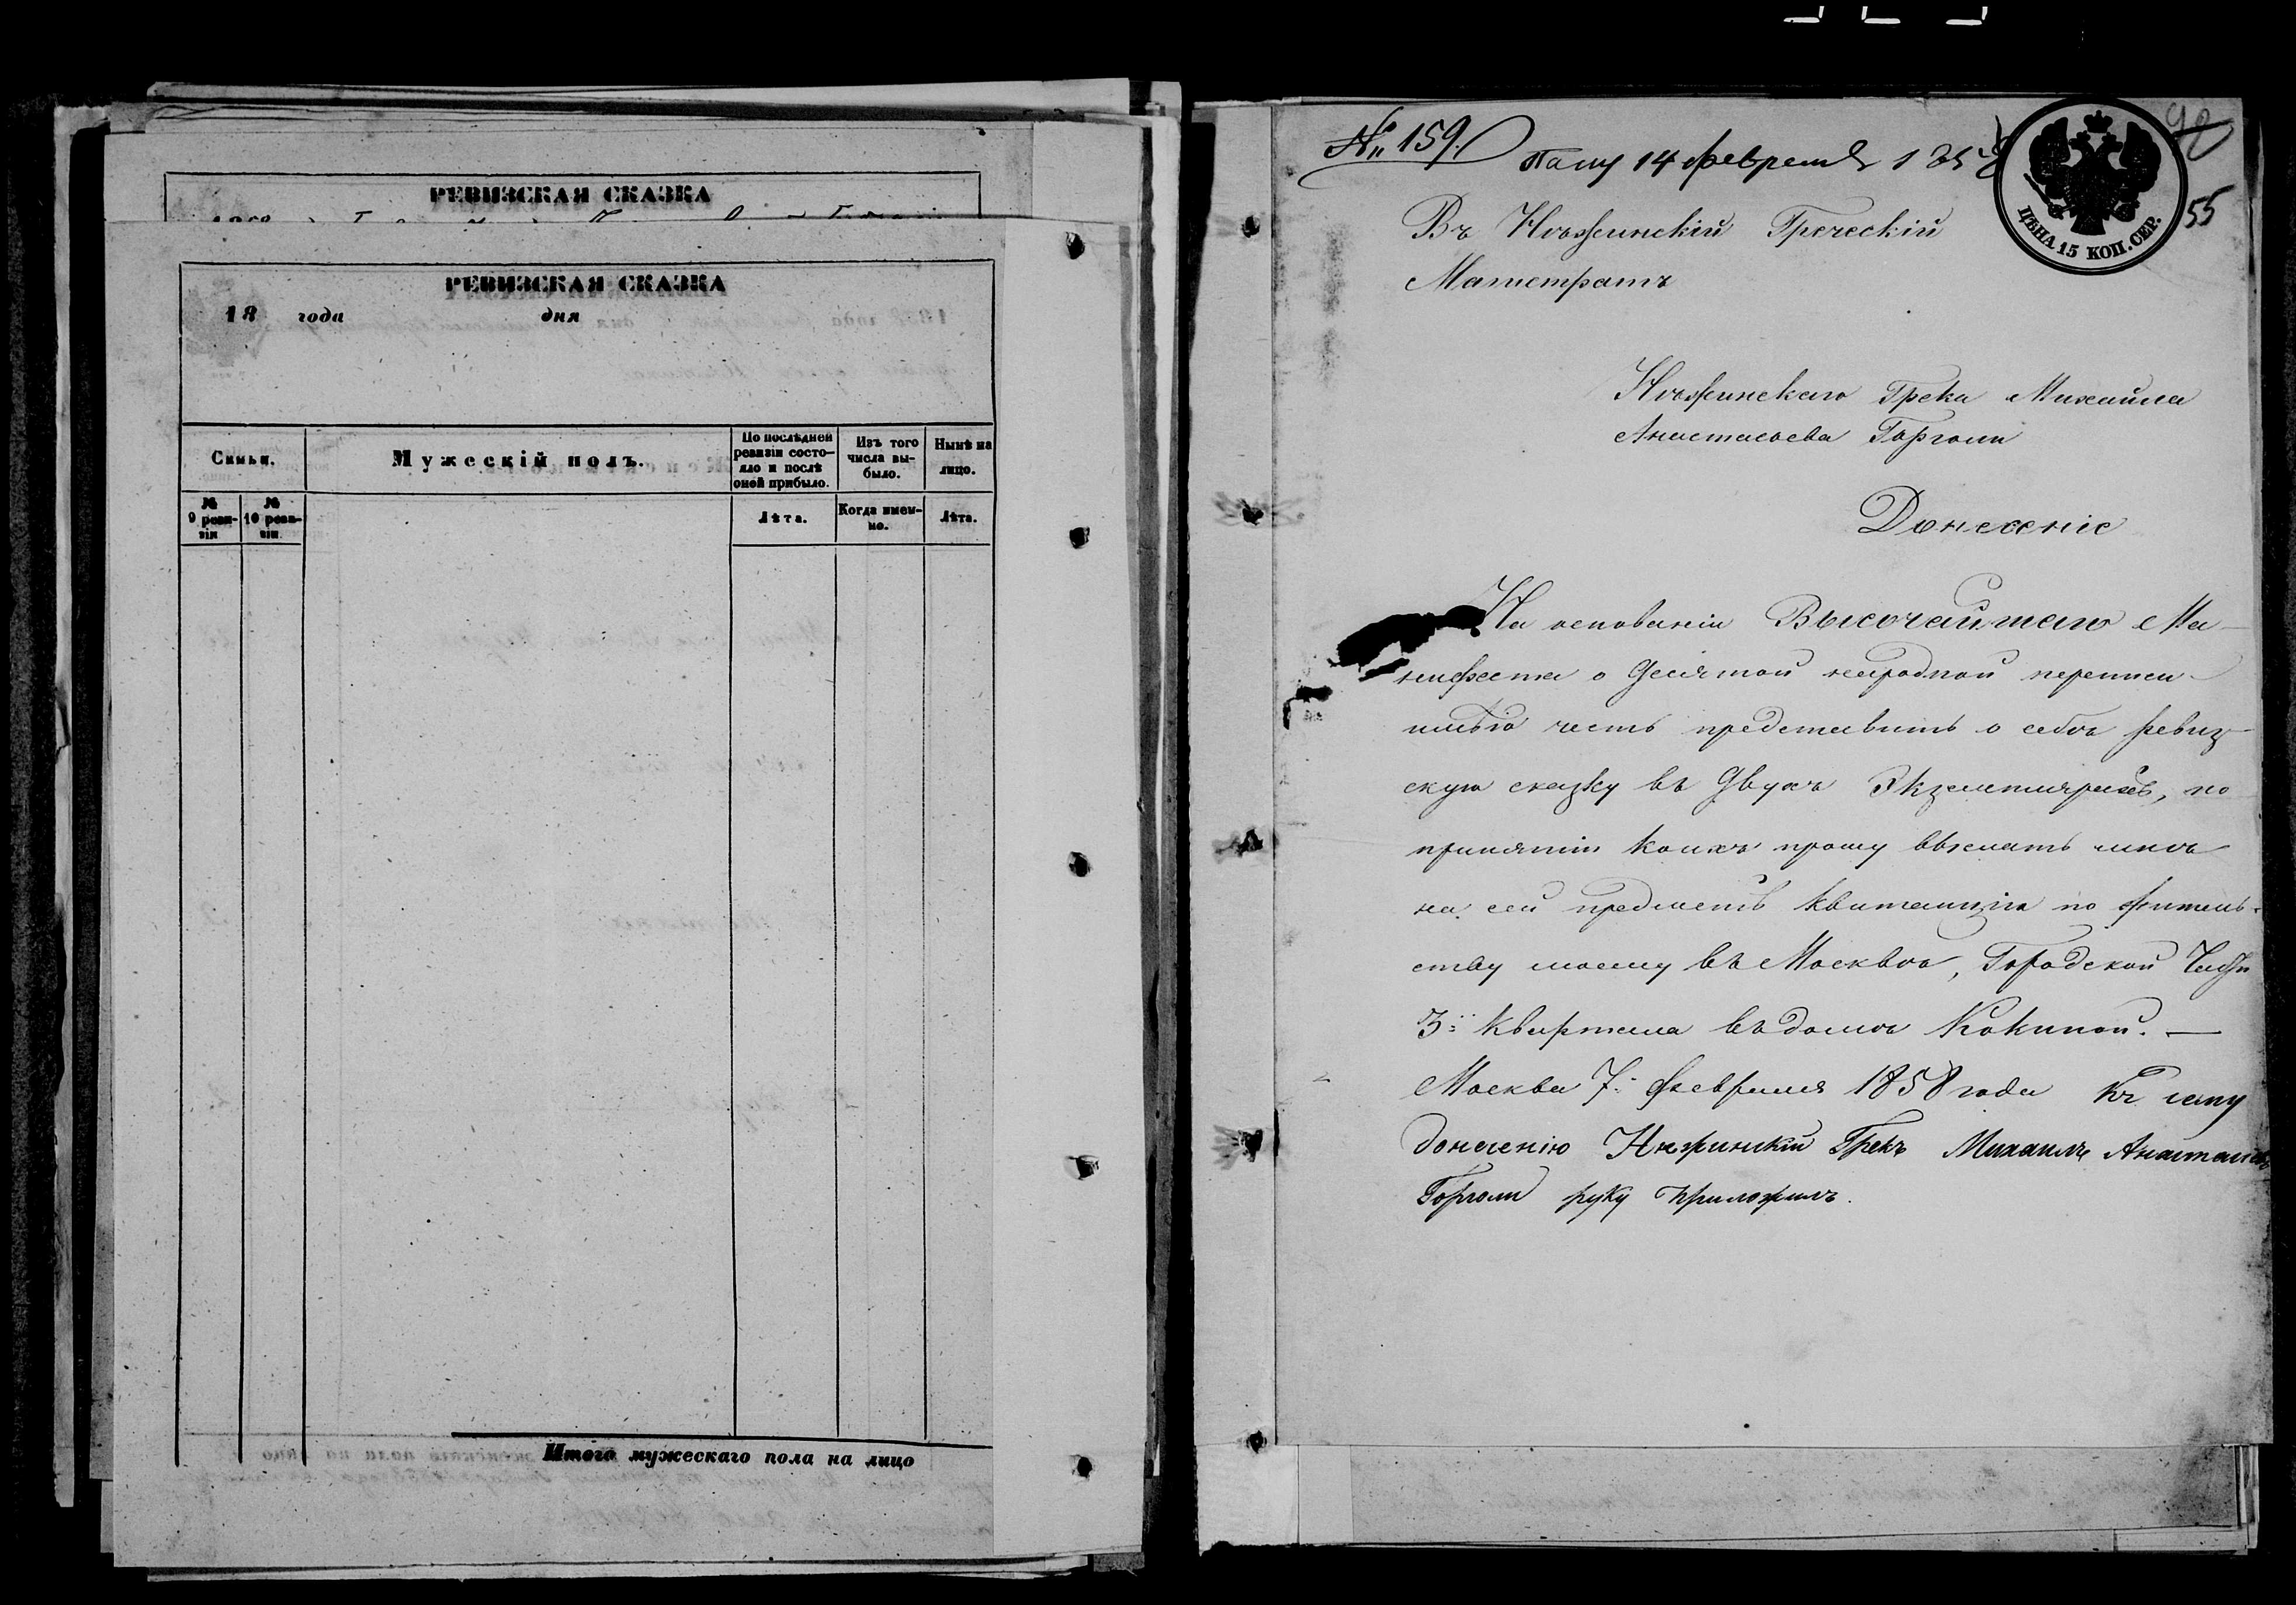 РЕВИЗСКАЯ СКАЗКА
РЕВИЗСКАЯ СКАЗКА
18 года дня
Симьи.
Мужескій полъ.
По послѣдней ревизіи состо-
яло и послѣ
оной прибыло.
Изъ того
числа вы-
было.
Нынѣ на
лицо.
№
9 реви-
зіи
№
10 реви-
зіи.
Лѣта.
Когда имен-
но.
Лѣта.
Итого мужескаго пола на лицо
№ 159. 14 февраля 1858
55
ЦѢНА 15 КОП. СЕР.
Въ Нѣжинскій Греческій
Магистратъ
Нѣжинскаго Грека Михаила
Анастасьева Горголи
Донесеніе
На основаніи Высочайшаго Ма-
нифеста о десятой народной переписи
имѣю честь представить о себѣ ревиз-
скую сказку въ двухъ Экземплярахъ, по
принятіи коихъ прошу выслать мнѣ
на сей предметъ квитанцію по житель-
ству моему въ Москвѣ, Городской Части
3: квартала въ домѣ Кокиной. —
Москва 7: февраля 1858 года Къ сему
донесенію Нежинскій Грекъ Михаилъ Анастасьевъ
Горголи руку приложилъ.